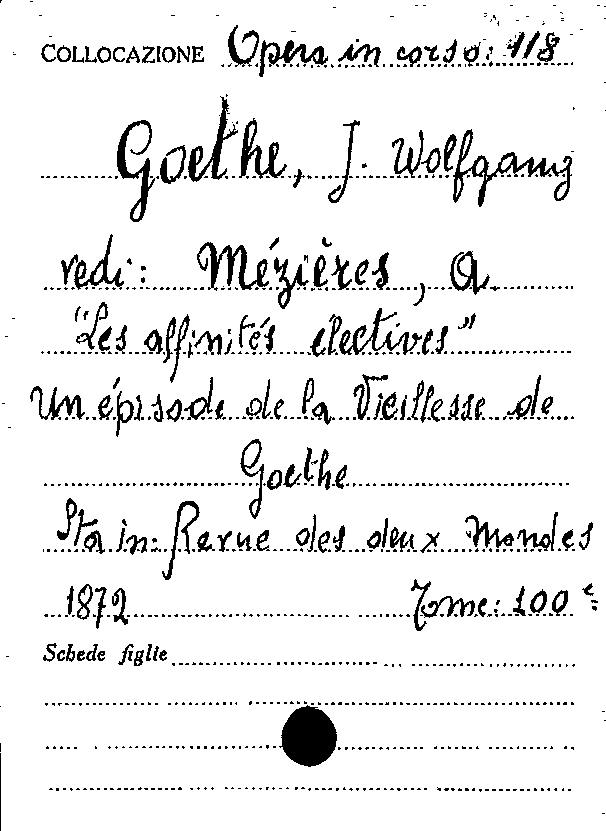 COLLOCAZIONE Opera in corso: 118
Goethe, J. Wolfgang
vedi: Mézières, A.
"Les affinités électives"
Un épisode de la Vieillesse de
Goethe
Sta in: Revue des deux Mondes
1872 Tome: 100e
Schede figlie